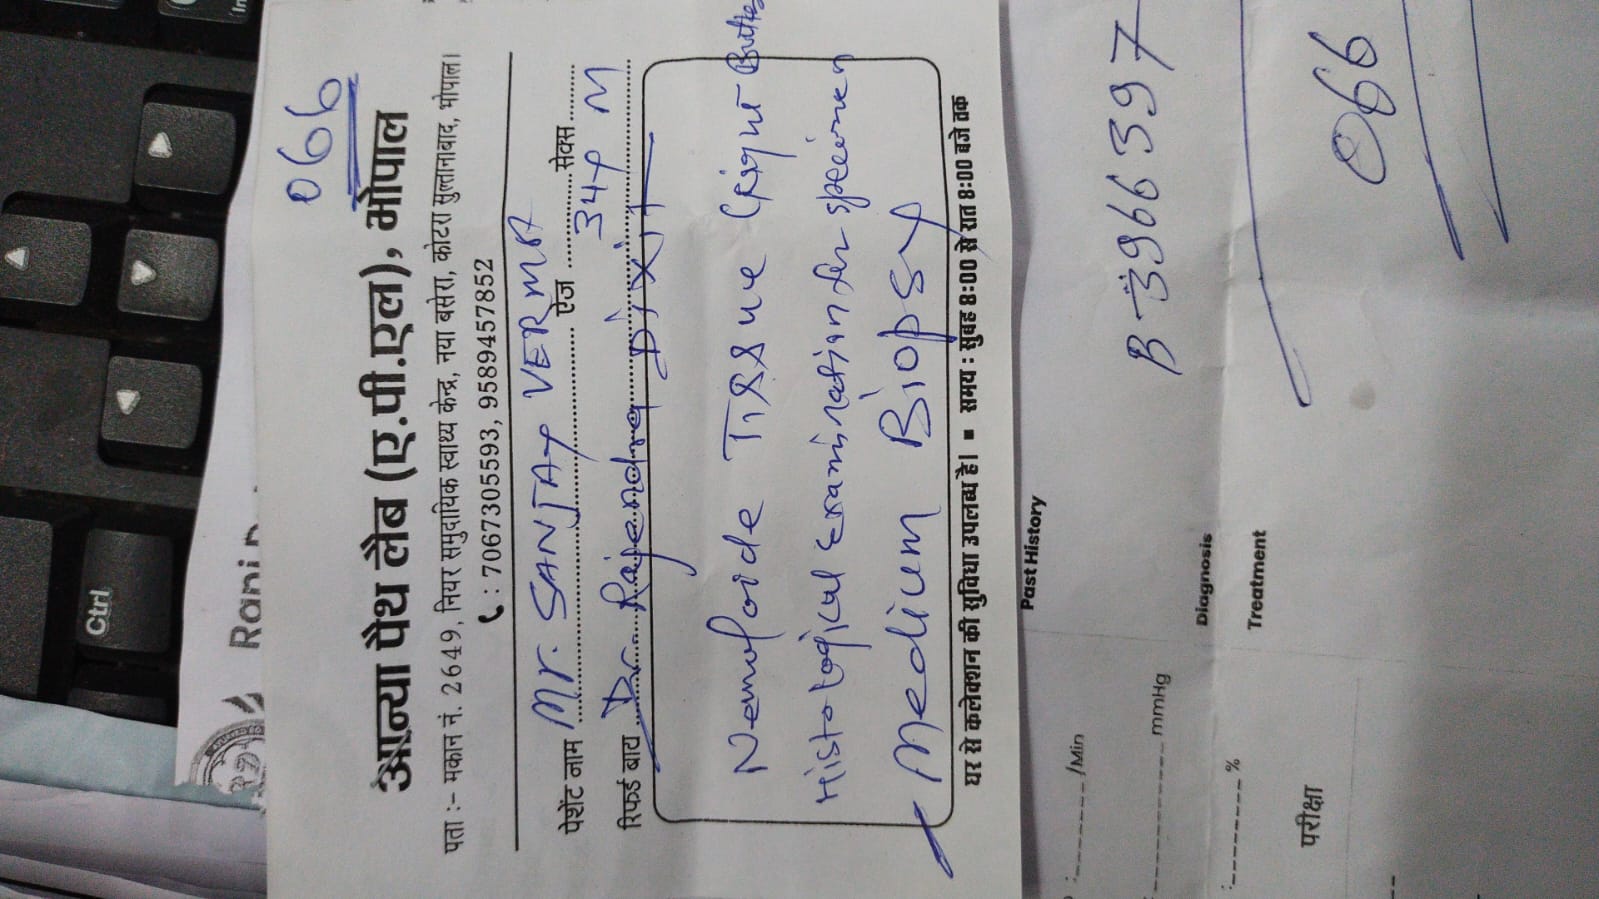 066
आन्या पैथ लैब (ए.पी.एल), भोपाल
पता :– मकान नं. 2649, नियर समुदायिक स्वाथ्य केन्द्र, नया बसेरा, कोटरा सुल्तानाबाद, भोपाल।
: 7067305593, 9589457852
पेशेंट नाम Mr. SANJAY VERMA ऐज 34y सेक्स M
रिफर्ड बाय Dr. Rajendra Dixit
Tissue (Right
Histological Examination for specimen
Medium Biopsy
घर से कलेक्शन की सुविधा उपलब्ध है। ■ समय : सुबह 8:00 से रात 8:00 बजे तक
Past History
B-3966397
Diagnosis
Treatment
066
/Min
mmHg
%
परीक्षा
Ctrl
Rani